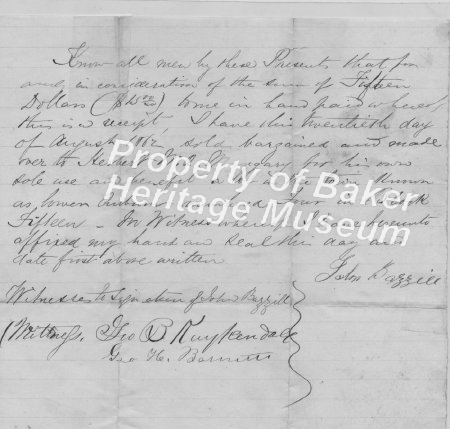 Know all men by these Presents that for
and in consideration of the sum of Fifteen
Dollars ($15 00/100) to me in hand paid whereof
this is a receipt, I have this twentieth day
of August 1862 sold bargained and made
over to for his own
sole use and benefit a known
as Auburn in Block
Fifteen – In Witness whereof I have hereunto
affixed my hand and Seal this day and
date first above written
John Bazzill
Witnesses to Signature of John Bazzill
(Witness. Geo B Kuykendall
Geo H. Barnett
Property of Baker
Heritage Museum